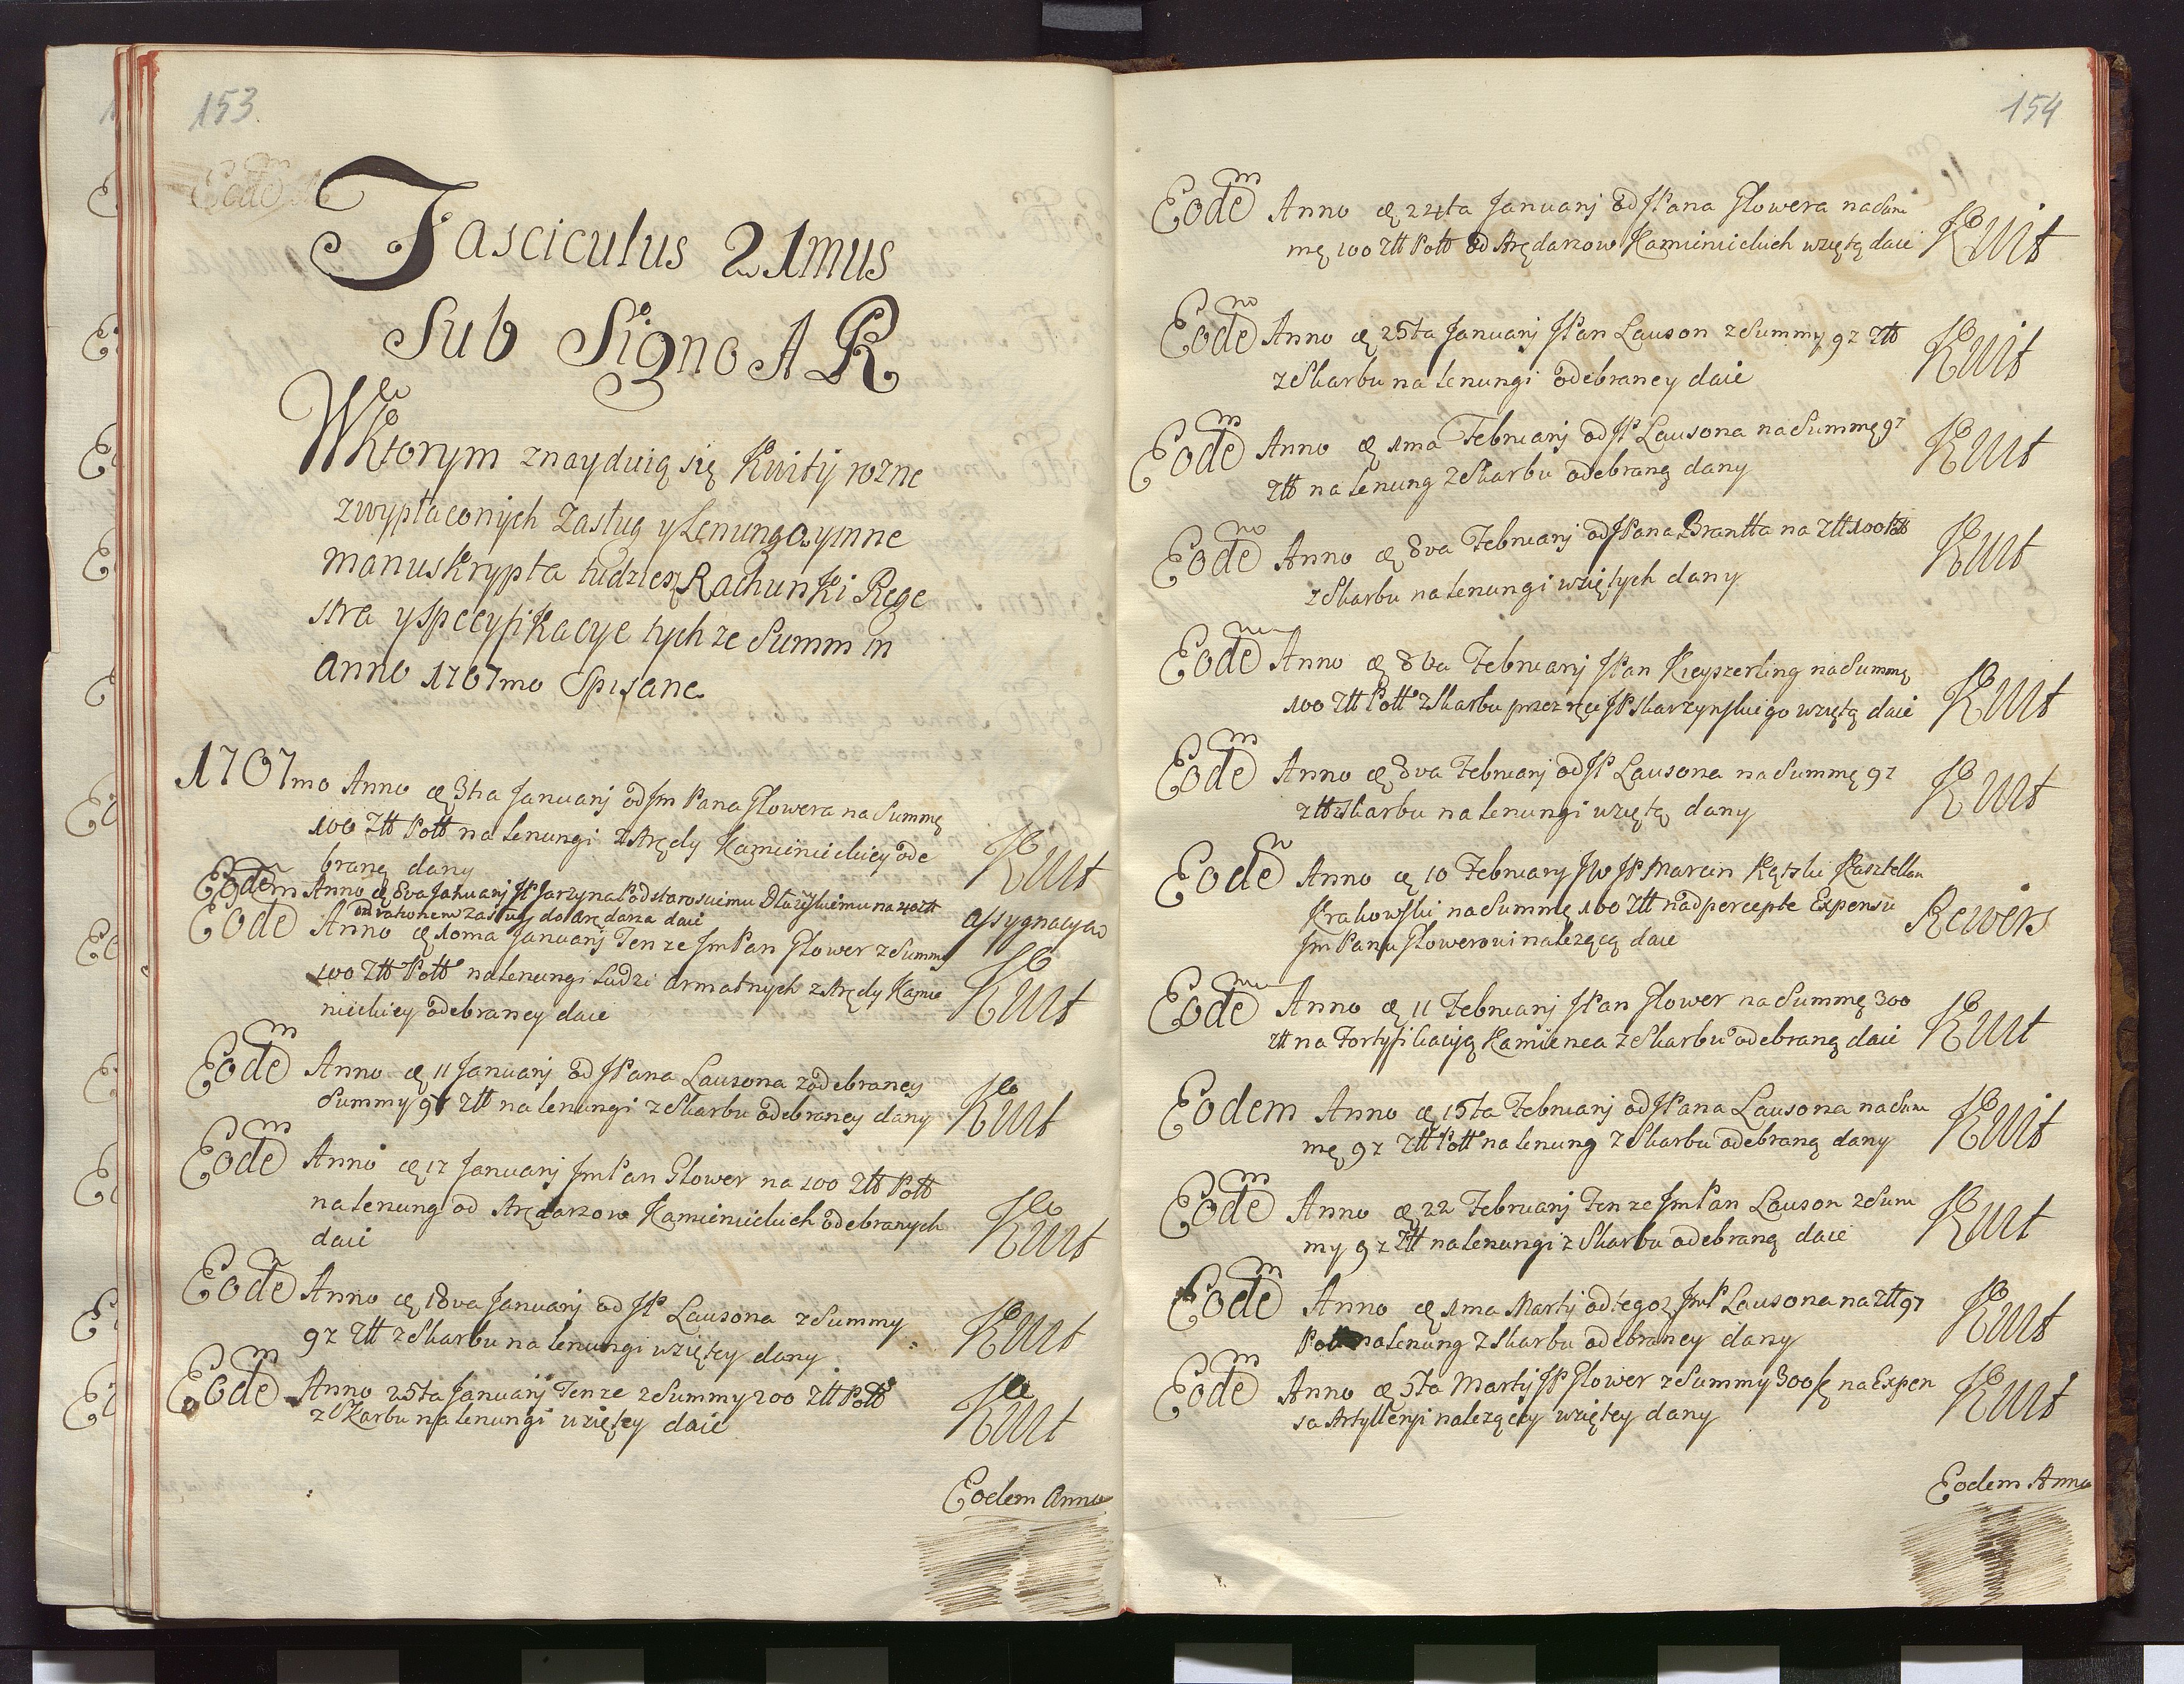 153.
Fasciculus 21mus
Sub Signo A R
W Ktorym znayduią się Kwity rozne
z wypłaconych Zasług y Lenungow y inne
manuskrypta tudziesz Rachunki Rege
stra y specyfikacye tychze Summ in
anno 1707mo Spisane
1707mo Anno d 3tia Januarj od Jm Pana Glowera na Summę
100 Złł Poll na lenungi z Arędy Kamienieckiey ode
braną dany Kwit
Eodem Anno d 8va Januarj JP Jarzyna Podstarosciemu Dłuzskiemu na 40 zł
Zasług do Arędarza daie assygnacya
Eodē Anno d 10ma Januarj Tenze Jm Pan Glower z Summy
100 Złł Poll na lenungi Ludzi Armatnych z Arędy Kamie
nieckiey odebraney daie Kwit
Eodē Anno d 11 Januarj od JPana Lausona z odebraney
Summy 97 Złł na lenungi z Skarbu odebraney dany Kwit
Eodē Anno d 17 Januarj Jm Pan Glower na 100 Złł Poll
na lenung od Arędarzow Kamienieckich odebranych
daie Kwit
Eodē Anno d 18va Januarj od JP Lausona z Summy
97 Złł z Skarbu na lenungi wziętey dany Kwit
Eodē Anno 25ta Januarj Tenze z Summy 200 Złł Poll
z Skarbu na lenungi wziętey daie Kwit
Eodem Anno
154
Eodē Anno d 24ta Januarj od JPana Glowera na Sum
mę 100 Złł Poll od Arędarzow Kamienieckich wziętą daie Kwit
Eodē Anno d 25ta Januarj JPan Lauson z Summy 97 Złł
z Skarbu na lenungi odebraney daie Kwit
Eodē Anno d 1ma Februarj od JP Lausona na Summę 97
Złł na lenung z Skarbu odebraną dany Kwit
Eodē Anno d 8va Februarj od JPana Brantta na Złł 100
z Skarbu na lenungi wziętych dany Kwit
Eodē Anno d 8va Februarj JPan Kieyzerling na Summę
100 Złł Poll z Skarbu przez ręce JP Skarzynskiego wziętą daie Kwit
Eodē Anno d 8va Februarj od JP Lausona na Summę 97
złł z Skarbu na lenungi wziętą dany Kwit
Eodē Anno d 10 February JW JP Marcin Kętski Kasztellan
Krakowski na Summę 100 Złł nad percepte Expensu
Jm Panu Glowerowi nalezącą daie Rewers
Eodē Anno d 11 Februarj JPan Glower na Summę 300
złł na Fortyfikacyą Kamienca z Skarbu odebraną daie Kwit
Eodem Anno d 15ta Februarj od JPana Lausona na Sum
mę 97 Złł Poll na lenung z Skarbu odebraną dany Kwit
Eodē Anno d 22 Februarj Tenze Jm Pan Lauson z Sum
my 97 Złł na lenungi z Skarbu odebraną daie Kwit
Eodē Anno d 1ma Martij od tegoz JmP Lausona na Złł 97
Poll na lenung z Skarbu odebraney dany Kwit
Eodē Anno d 5ta Martij JP Glower z Summy 300 na Expen
sa Artylleryi nalezącey wziętey dany Kwit
Eodem Anno